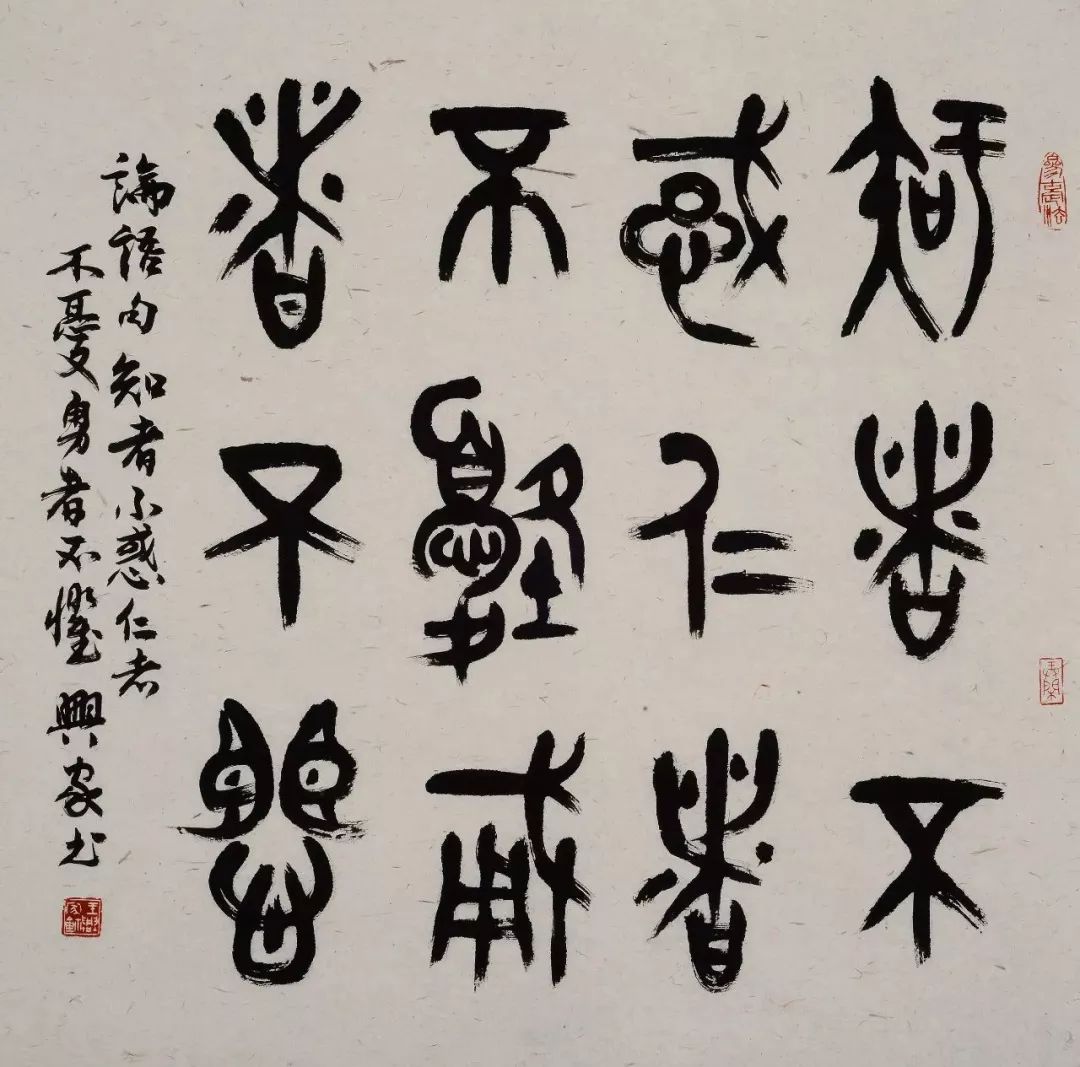 知者不
惑仁者
不憂勇
者不懼
論語句知者不惑仁者
不憂勇者不懼 興家书